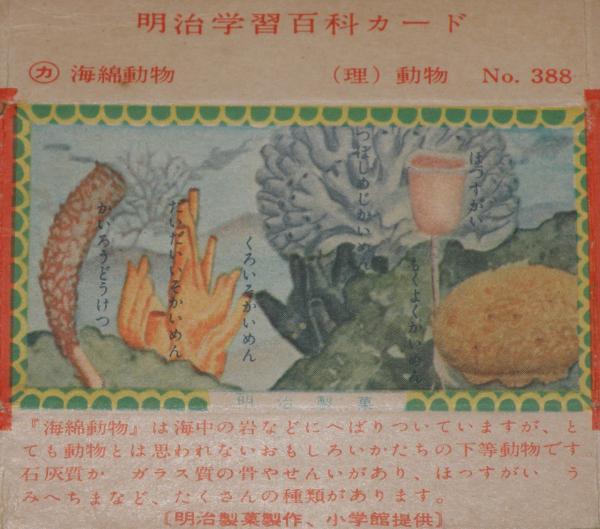 明治学習百科カード
カ 海綿動物 (理) 動物 No. 388
つぼしめじかいめん
ほつすがい
かいろうどうけつ
だいだいいそかいめん
くろいそかいめん
もくよくかいめん
明治製菓
『海綿動物』は海中の岩などにへばりついていますが、と
ても動物とは思われないおもしろいかたちの下等動物です
石灰質か ガラス質の骨やせんいがあり、ほつすがい う
みへちまなど、たくさんの種類があります。
〔明治製菓製作、小学館提供〕